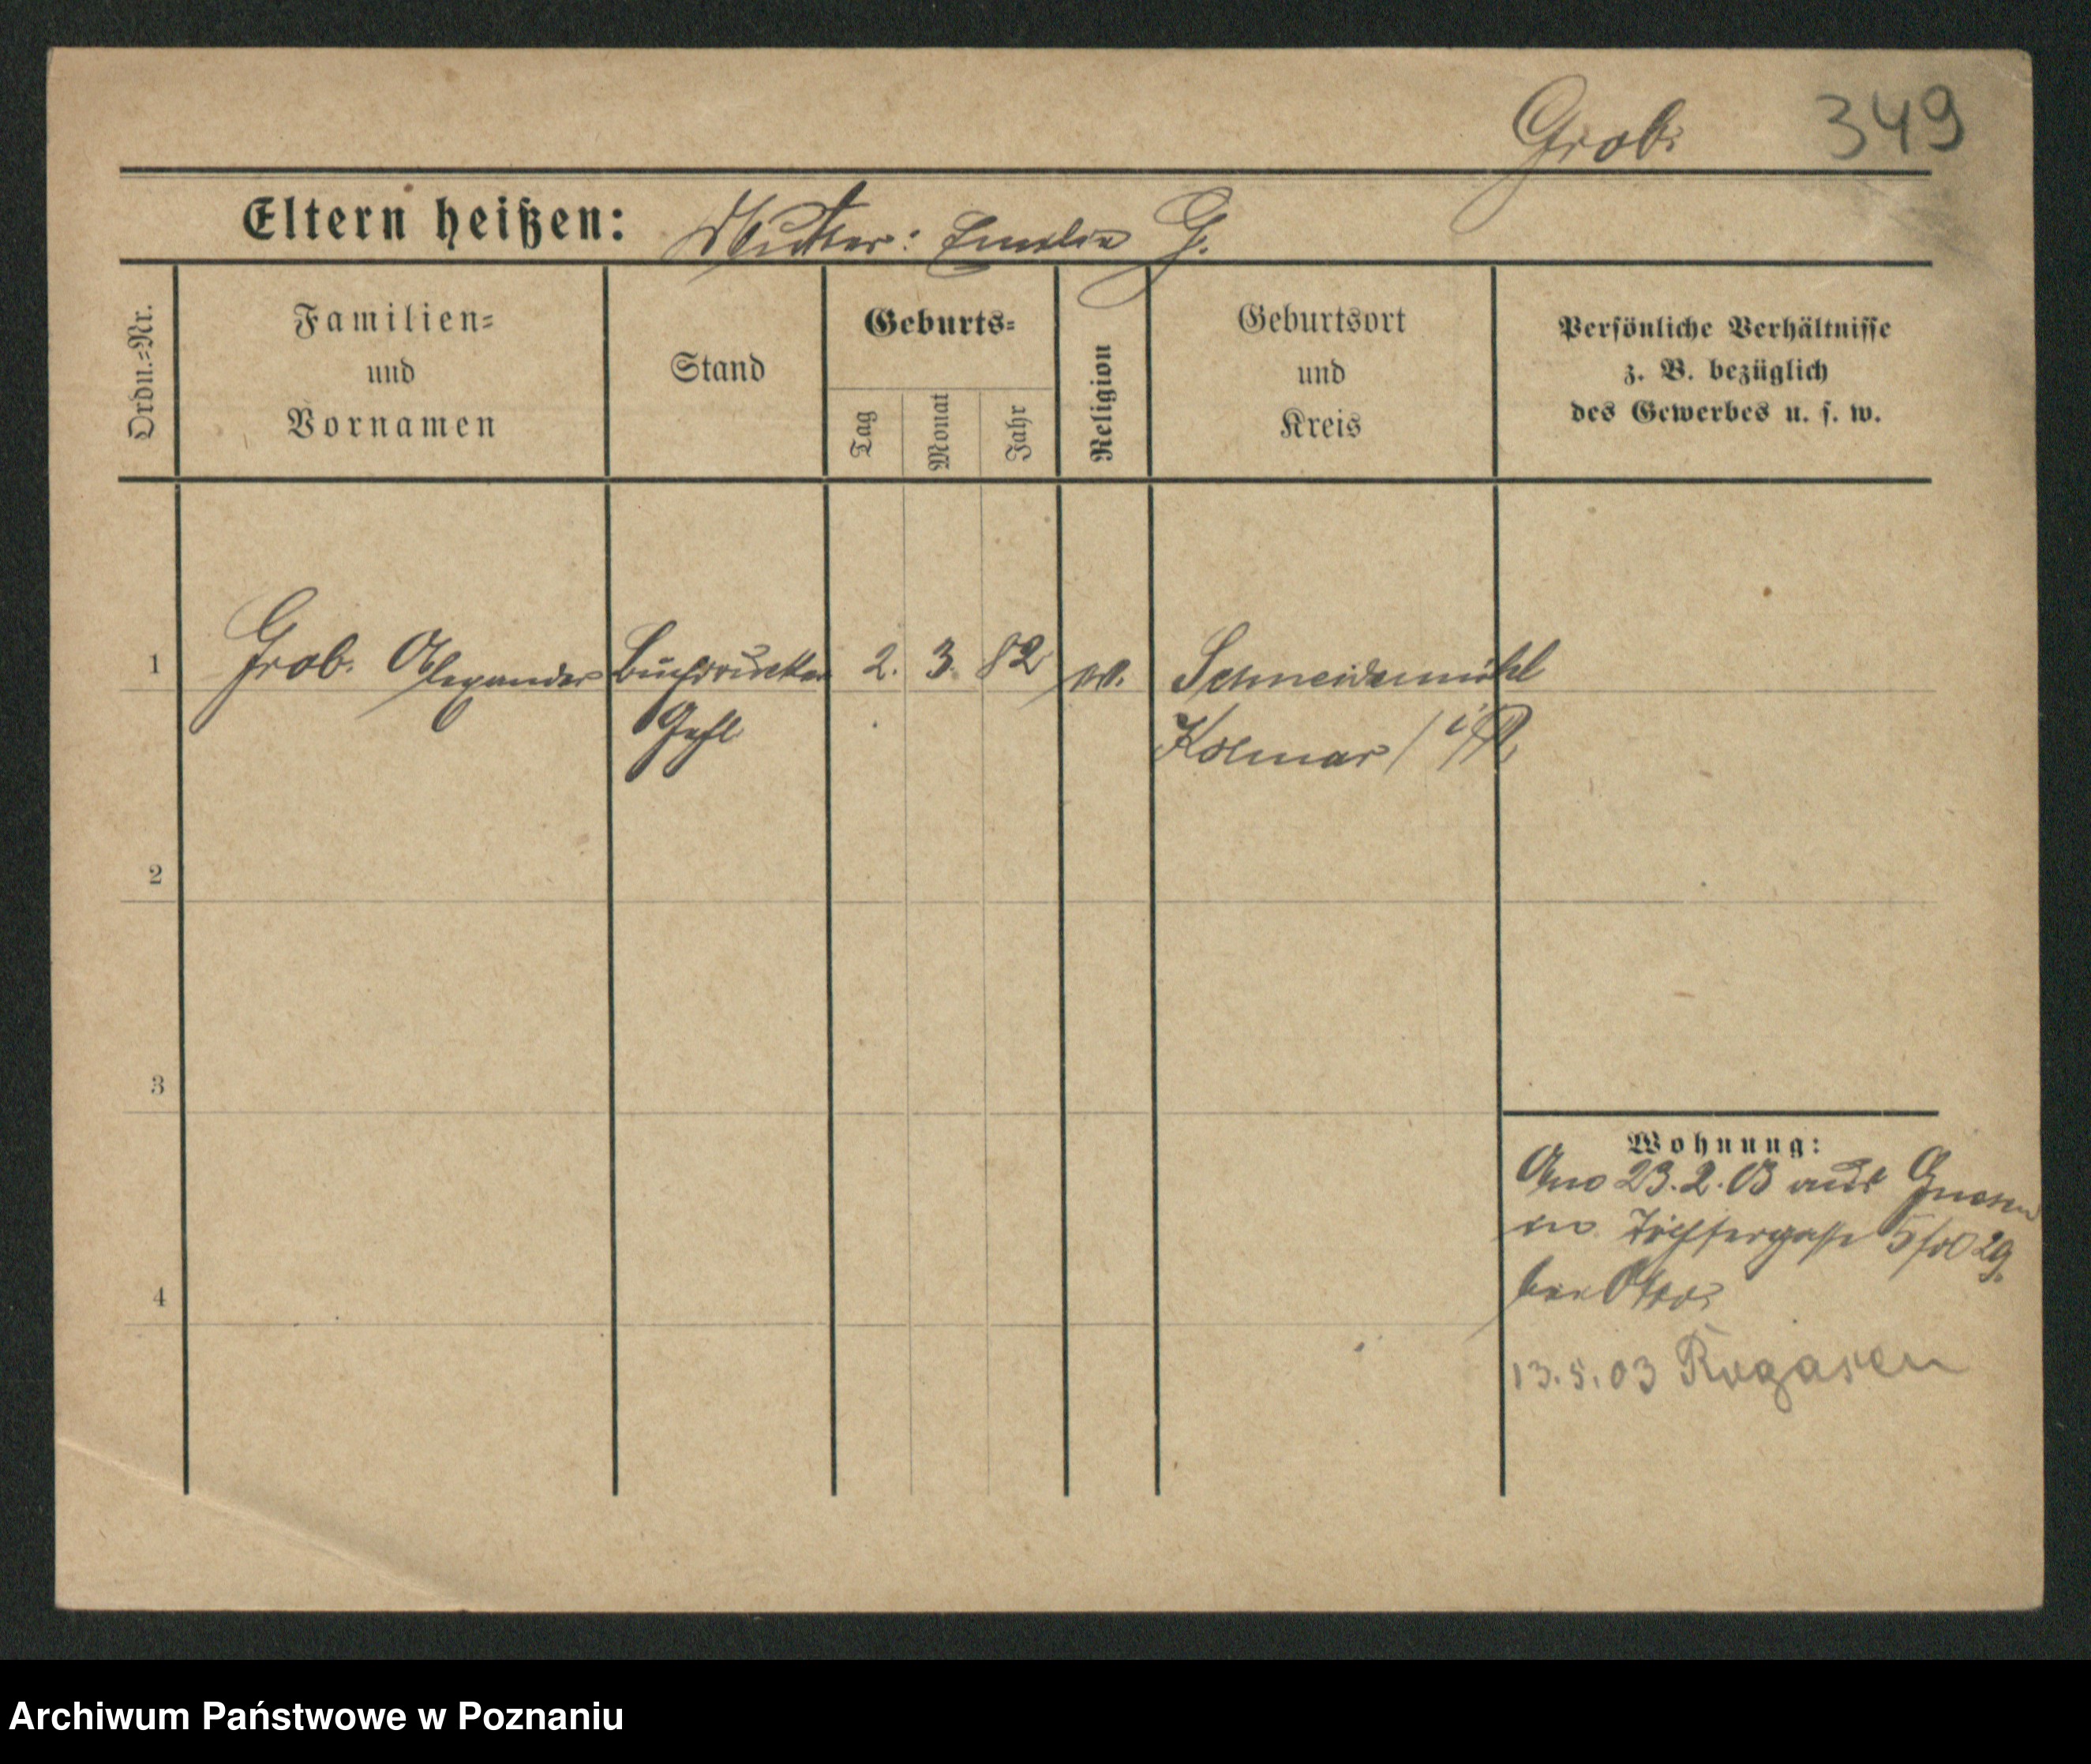 Grob. 349
Eltern heißen: Mutter: Emilie G.
Ordn.=Nr.
Familien=
und
Vornamen
Stand
Geburts=
Tag
Monat
Jahr
Religion
Geburtsort
und
Kreis
Persönliche Verhältnisse
z. B. bezüglich
des Gewerbes u. s. w.
1 Grob. Alexander Buchdrucker 2. 3. 82 ev. Schneidemühl
Kolmar / i/P.
2
3
4
Wohnung:
23.2.03 aus Gnesen
bei Otto
13.5.03 Rogasen
Archiwum Państwowe w Poznaniu